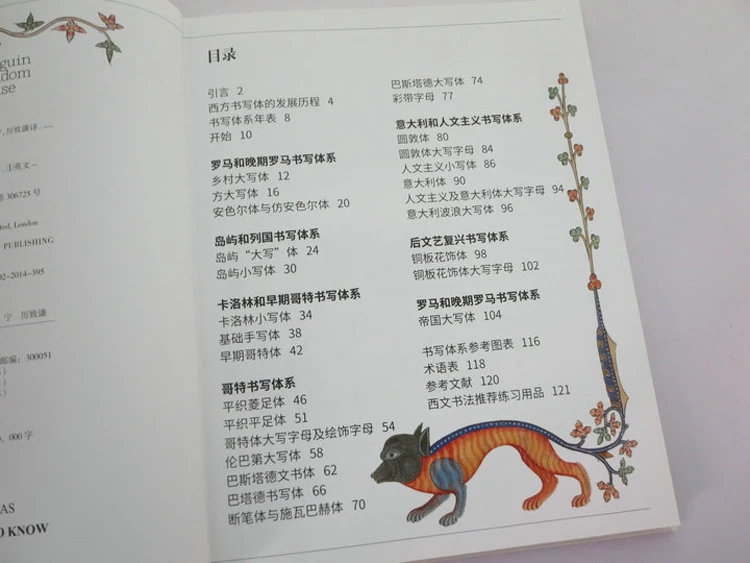 guin
dom
se
厉致谦译. —
①英文—
306725 号
ted, London
PUBLISHING
02-2014-395
厉致谦
邮编: 300051
000 字
AS
O KNOW
目录
引言 2
西方书写体的发展历程 4
书写体系年表 8
开始 10
罗马和晚期罗马书写体系
乡村大写体 12
方大写体 16
安色尔体与仿安色尔体 20
岛屿和列国书写体系
岛屿“大写”体 24
岛屿小写体 30
卡洛林和早期哥特书写体系
卡洛林小写体 34
基础手写体 38
早期哥特体 42
哥特书写体系
平织菱足体 46
平织平足体 51
哥特体大写字母及绘饰字母 54
伦巴第大写体 58
巴斯塔德文书体 62
巴塔德书写体 66
断笔体与施瓦巴赫体 70
巴斯塔德大写体 74
彩带字母 77
意大利和人文主义书写体系
圆敦体 80
圆敦体大写字母 84
人文主义小写体 86
意大利体 90
人文主义及意大利体大写字母 94
意大利波浪大写体 96
后文艺复兴书写体系
铜板花饰体 98
铜板花饰体大写字母 102
罗马和晚期罗马书写体系
帝国大写体 104
书写体系参考图表 116
术语表 118
参考文献 120
西文书法推荐练习用品 121